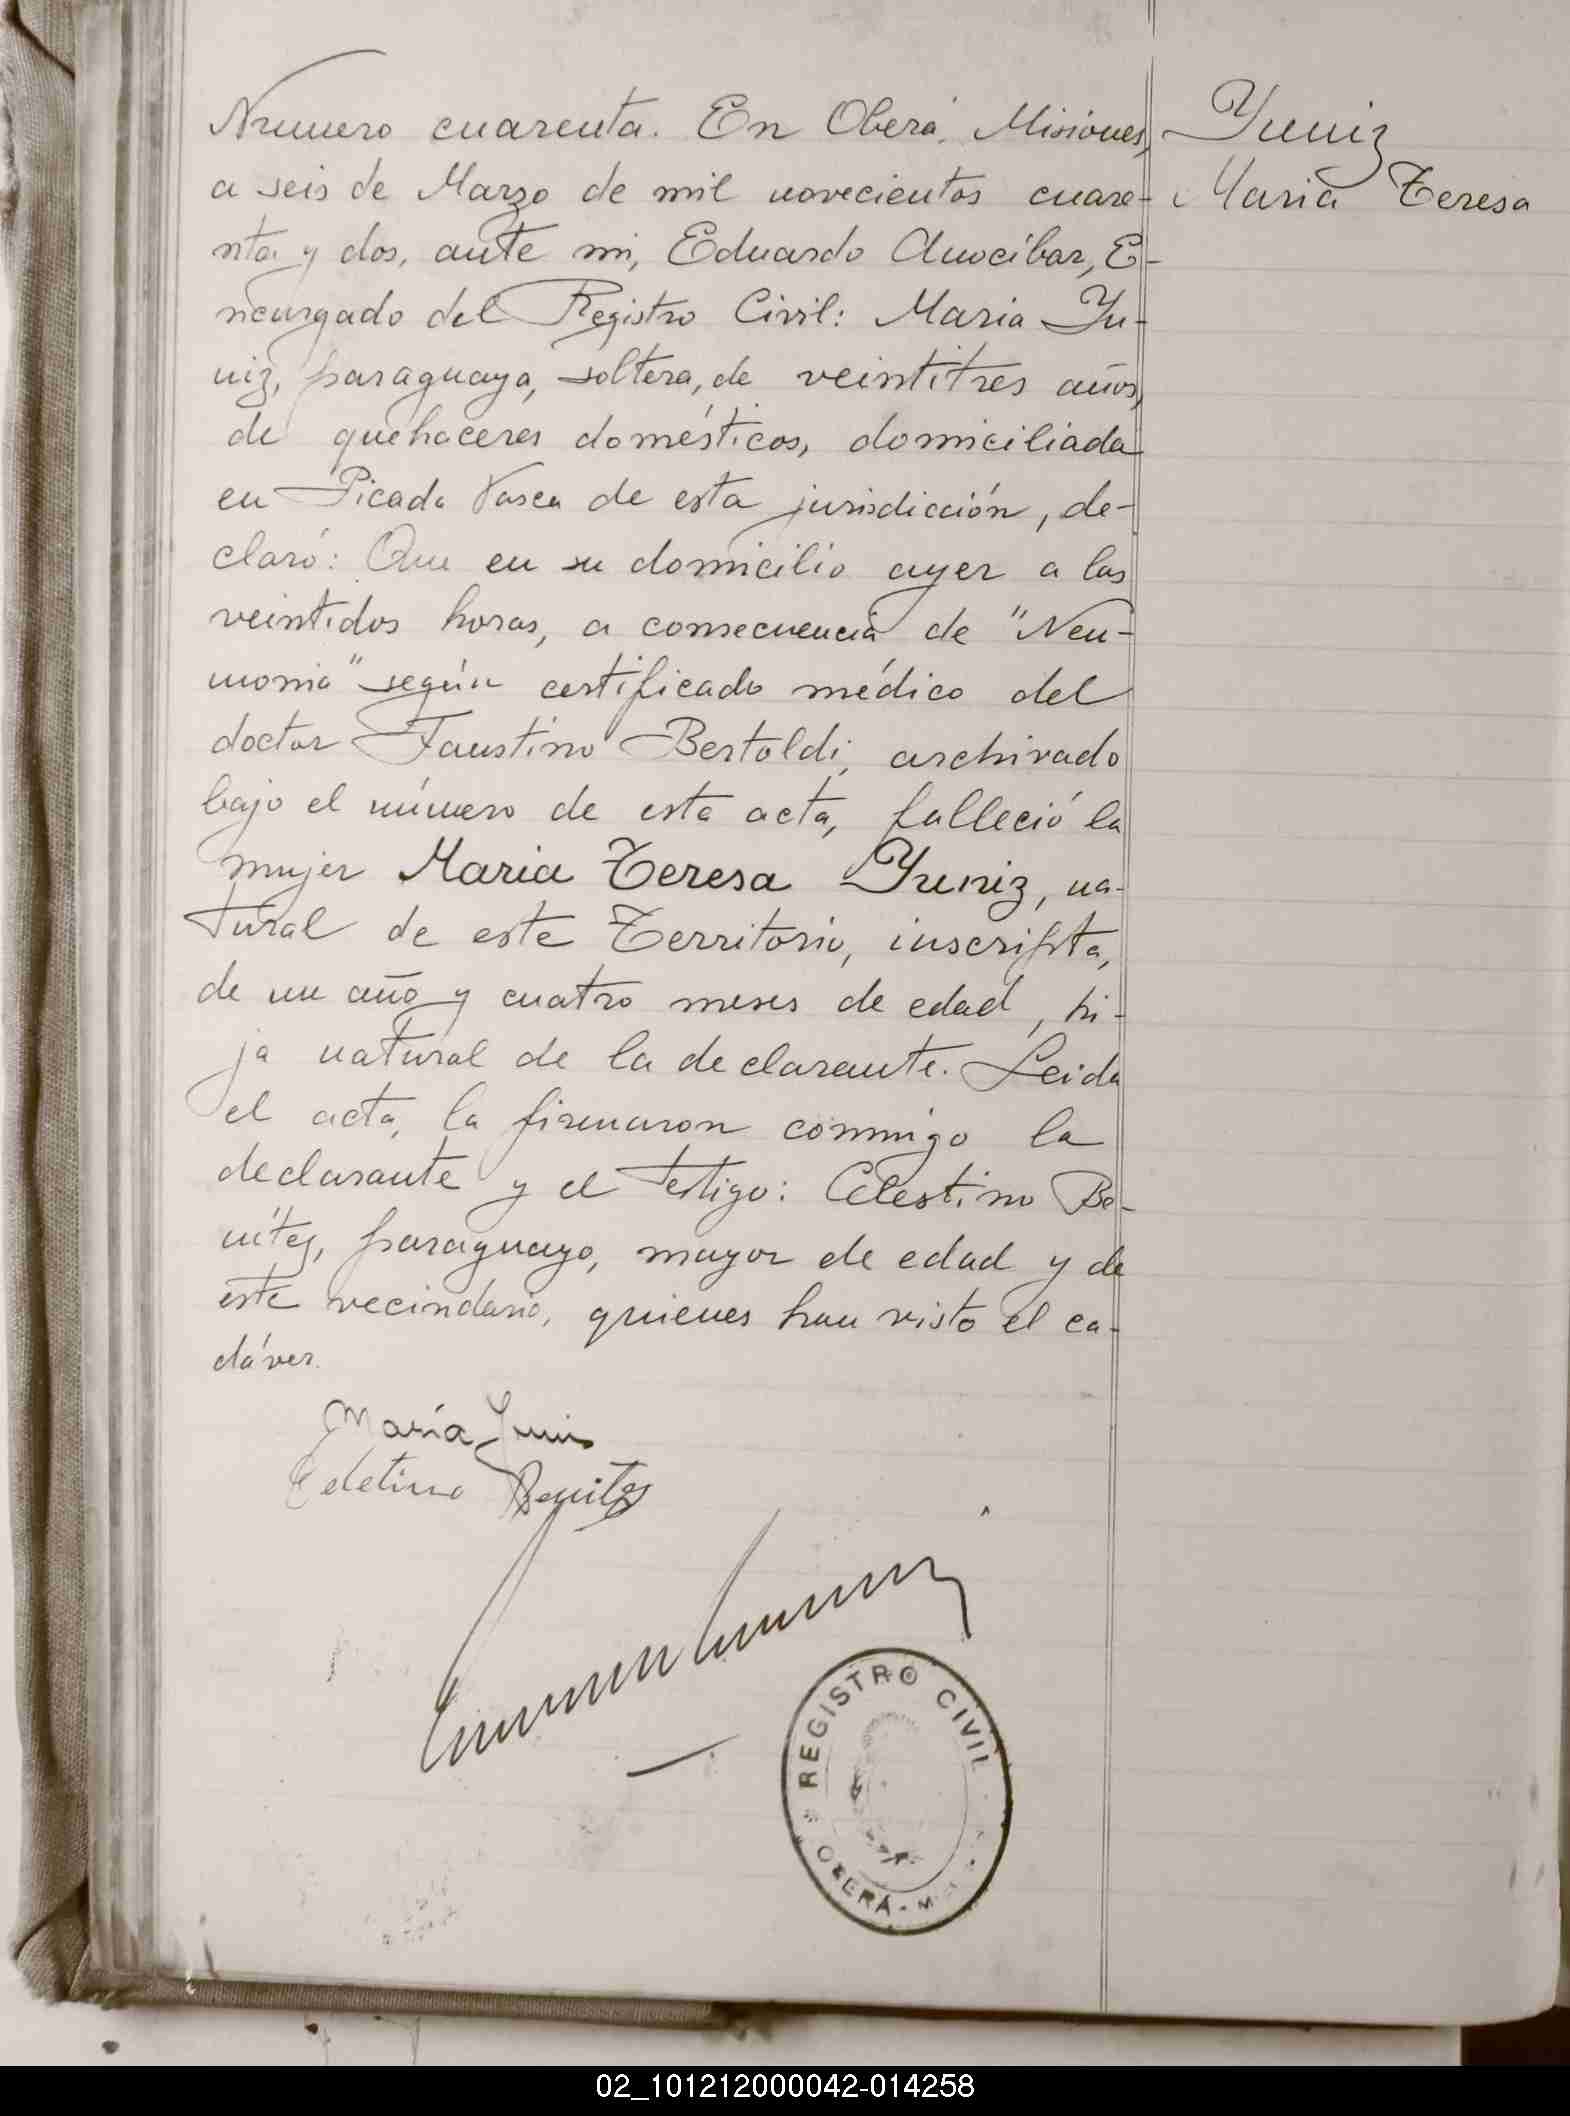 Numero cuarenta. En Oberá, Misiones,
a seis de Marzo de mil novecientos cuare-
nta y dos, ante mi, Eduardo Anocibar, E-
ncargado del Registro Civil: Maria Yu-
niz, paraguaya, soltera, de veintitres años,
de quehaceres domésticos, domiciliada
en Picada Vasca de esta jurisdicción, de-
claró: Que en su domicilio ayer a las
veintidos horas, a consecuencia de "Neu-
monia" según certificado médico del
doctor Faustino Bertoldi, archivado
bajo el número de esta acta, falleció la
mujer Maria Teresa Yuniz, na-
tural de este Territorio, inscripta,
de un año y cuatro meses de edad, hi-
ja natural de la declarante. Leida
el acta, la firmaron conmigo la
declarante y el testigo: Celestino Be-
nítez, paraguayo, mayor de edad y de
este vecindario, quienes han visto el ca-
dáver.
Yuniz
Maria Teresa
María Yunis
Celetino Benitez
REGISTRO CIVIL
OBERÁ -
02_101212000042-014258